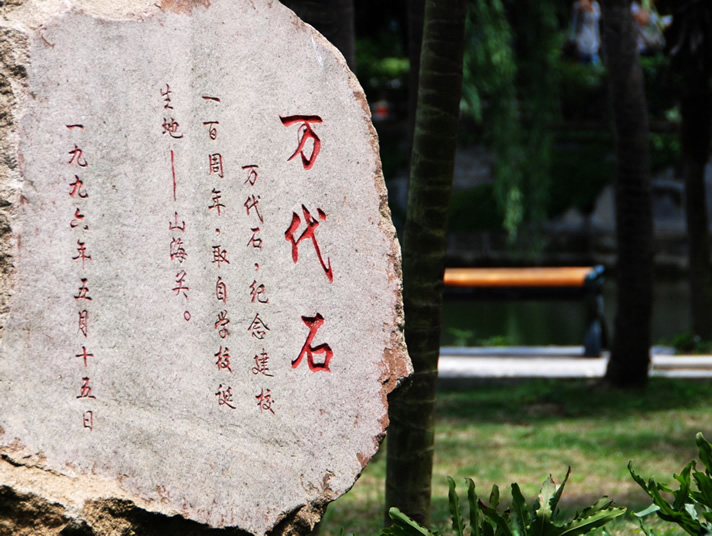 万代石
万代石，纪念建校
一百周年，取自学校诞
生地——山海关。
一九九六年五月十五日